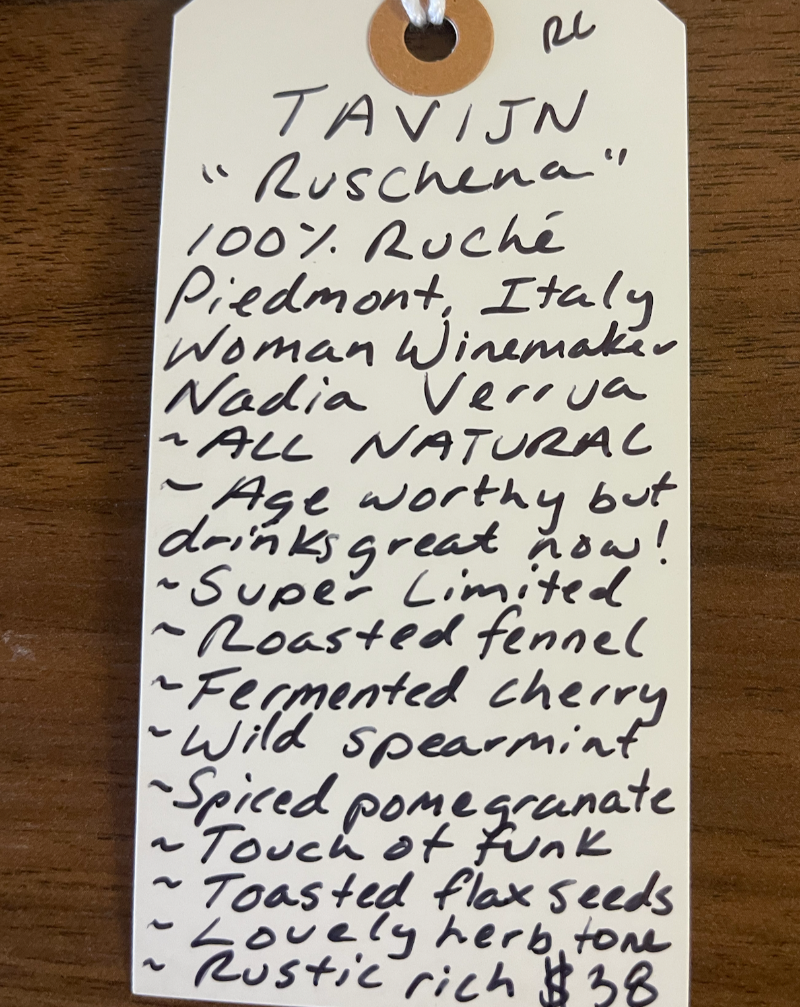 RC
TAVIJN
"Ruschena"
100% Ruché
Piedmont, Italy
Woman Winemaker
Nadia Verrua
~ALL NATURAL
~Age worthy but
drinks great now!
~Super Limited
~Roasted fennel
~Fermented cherry
~Wild spearmint
~Spiced pomegranate
~Touch of funk
~Toasted flax seeds
~Lovely herb tone
~Rustic rich $38